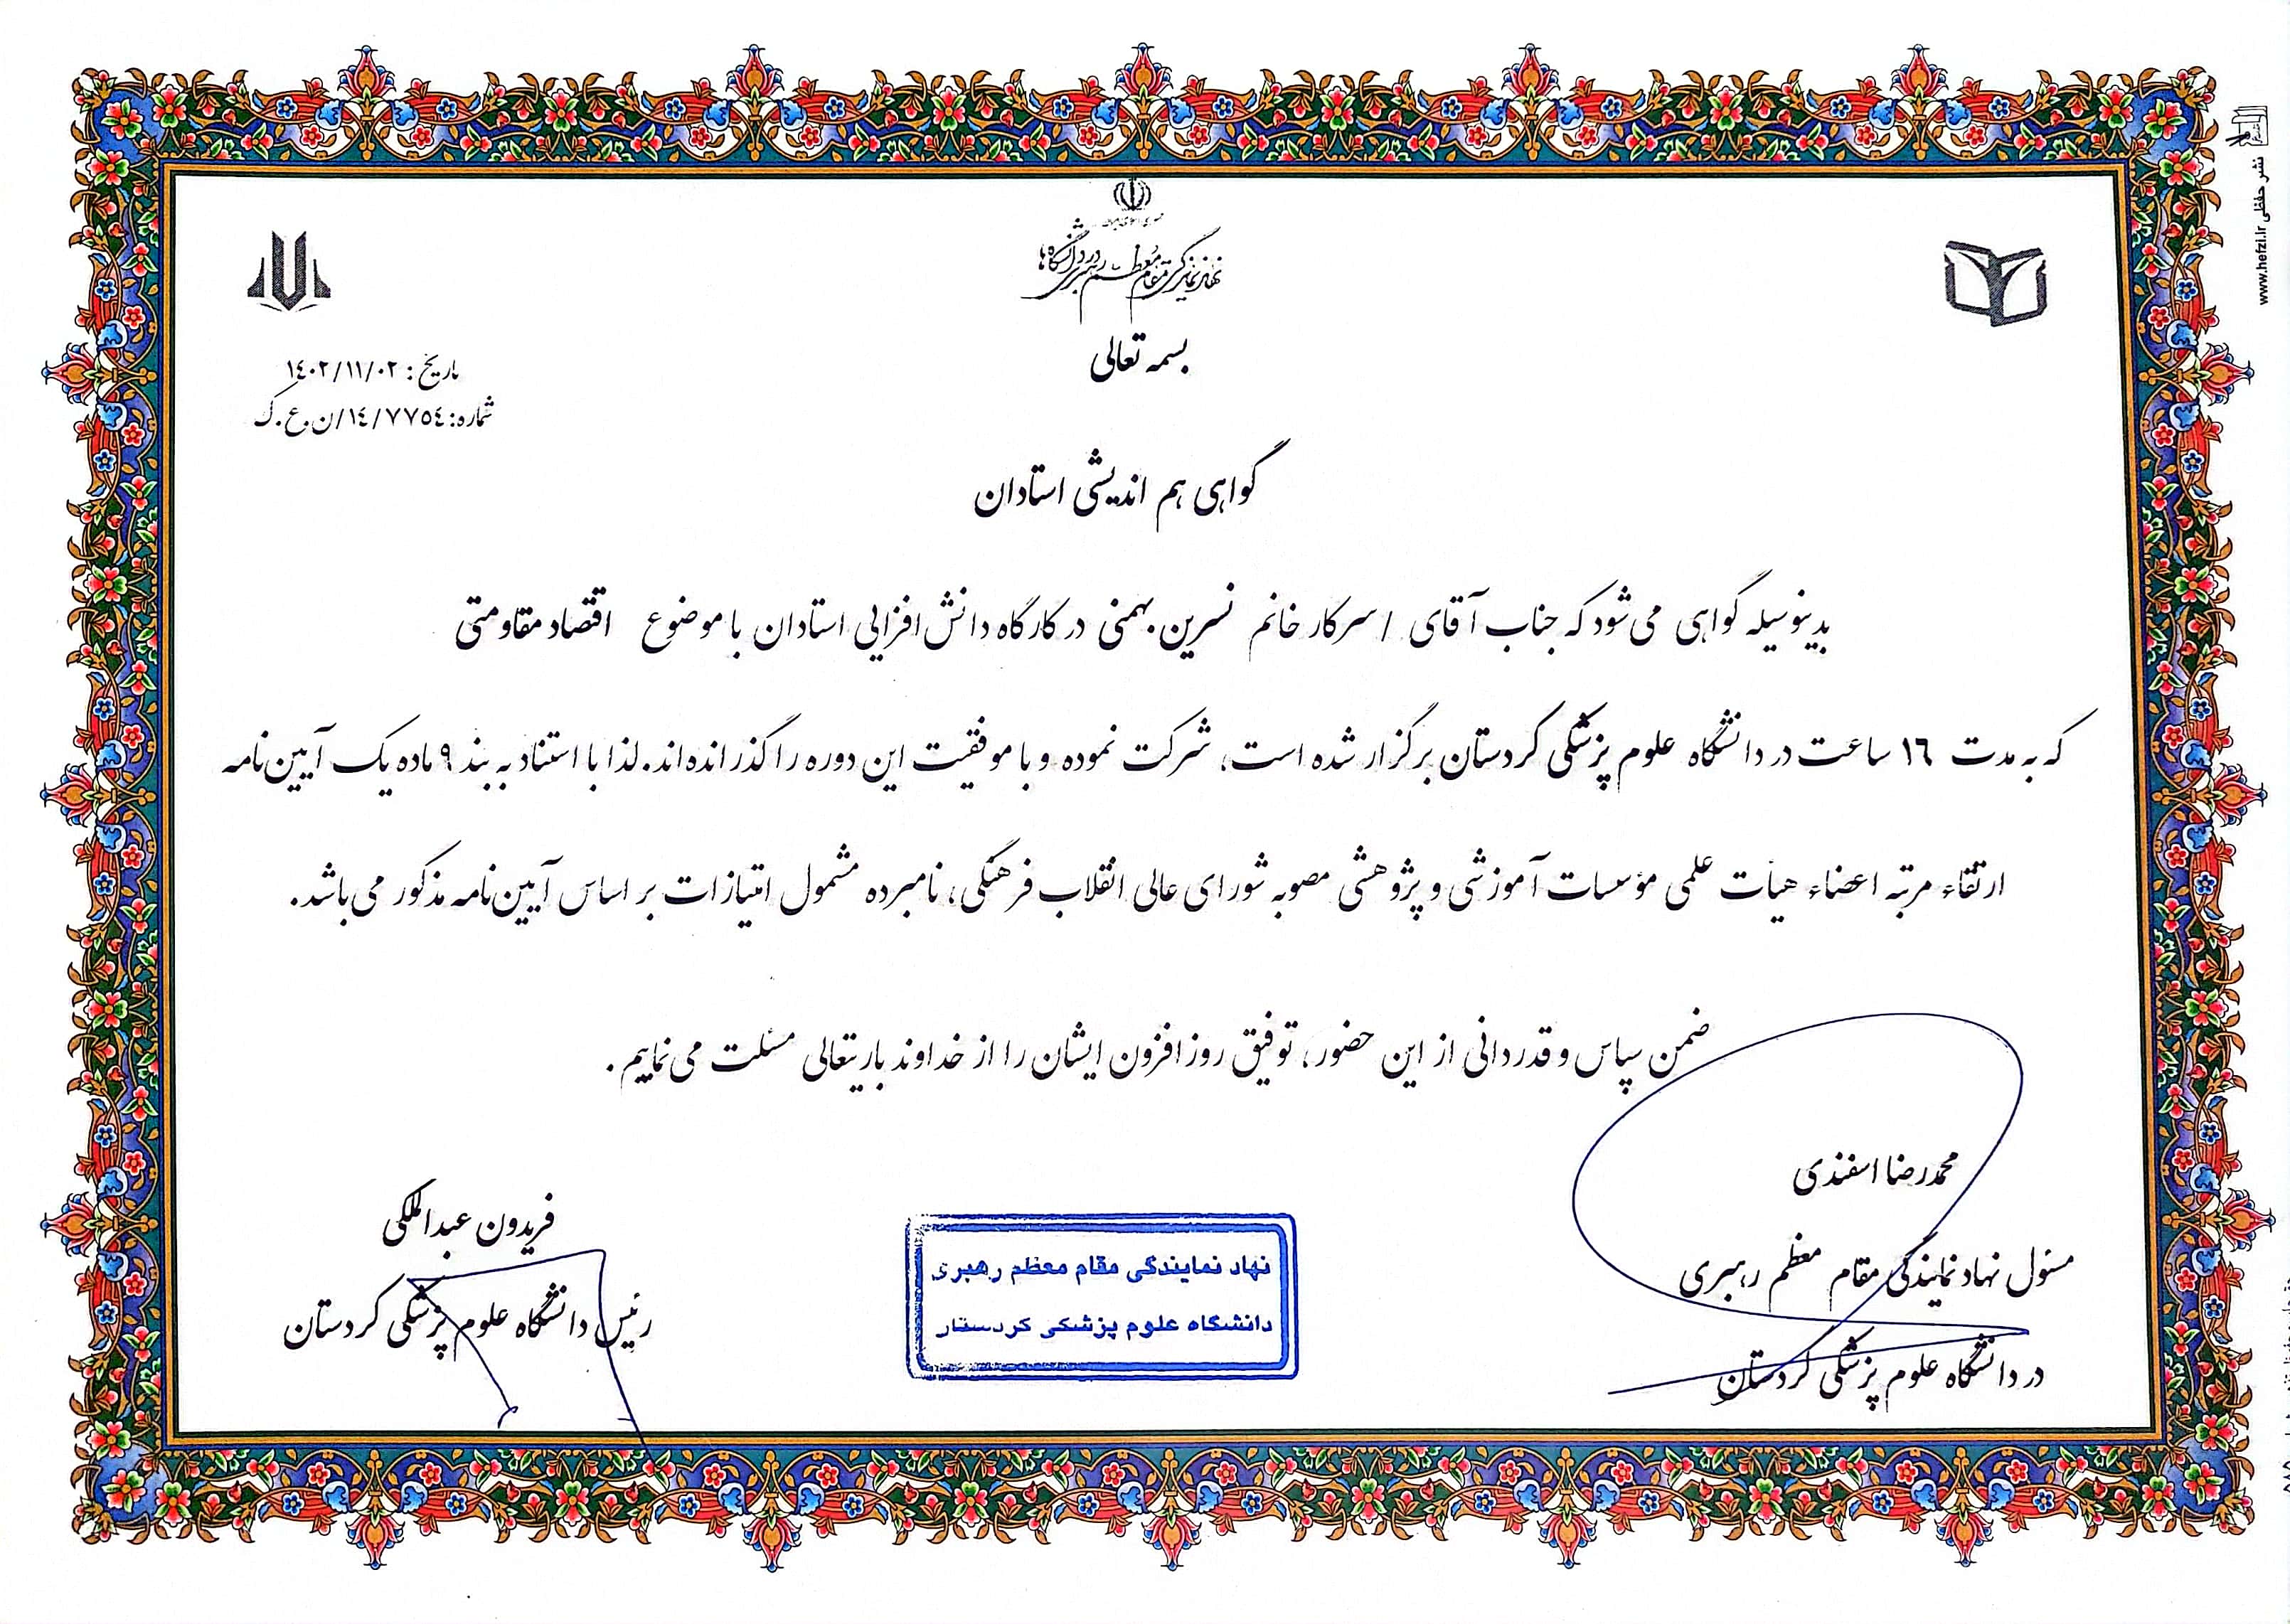 جمهوری اسلامی ایران
نهاد نمایندگی مقام معظم رهبری در دانشگاه‌ها
بسمه تعالی
تاریخ : ۱٤۰۲/۱۱/۰۲
شماره: ۱٤/۷۷٥٤/ن.ع.ک
گواهی هم اندیشی استادان
بدینوسیله گواهی می‌شود که جناب آقای / سرکار خانم نسرین بهمنی در کارگاه دانش افزایی استادان با موضوع اقتصاد مقاومتی
که به مدت ۱٦ ساعت در دانشگاه علوم پزشکی کردستان برگزار شده است، شرکت نموده و با موفقیت این دوره را گذرانده‌اند. لذا با استناد به بند ۹ ماده یک آیین‌نامه
ارتقاء مرتبه اعضاء هیأت علمی مؤسسات آموزشی و پژوهشی مصوبه شورای عالی انقلاب فرهنگی، نامبرده مشمول امتیازات بر اساس آیین‌نامه مذکور می‌باشد.
ضمن سپاس و قدردانی از این حضور، توفیق روزافزون ایشان را از خداوند باریتعالی مسئلت می‌نماییم.
محمدرضا اسفندی
مسئول نهاد نمایندگی مقام معظم رهبری
در دانشگاه علوم پزشکی کردستان
نهاد نمایندگی مقام معظم رهبری
دانشگاه علوم پزشکی کردستان
فریدون عبدالملکی
رئیس دانشگاه علوم پزشکی کردستان
نشر حفظی www.hefzi.ir